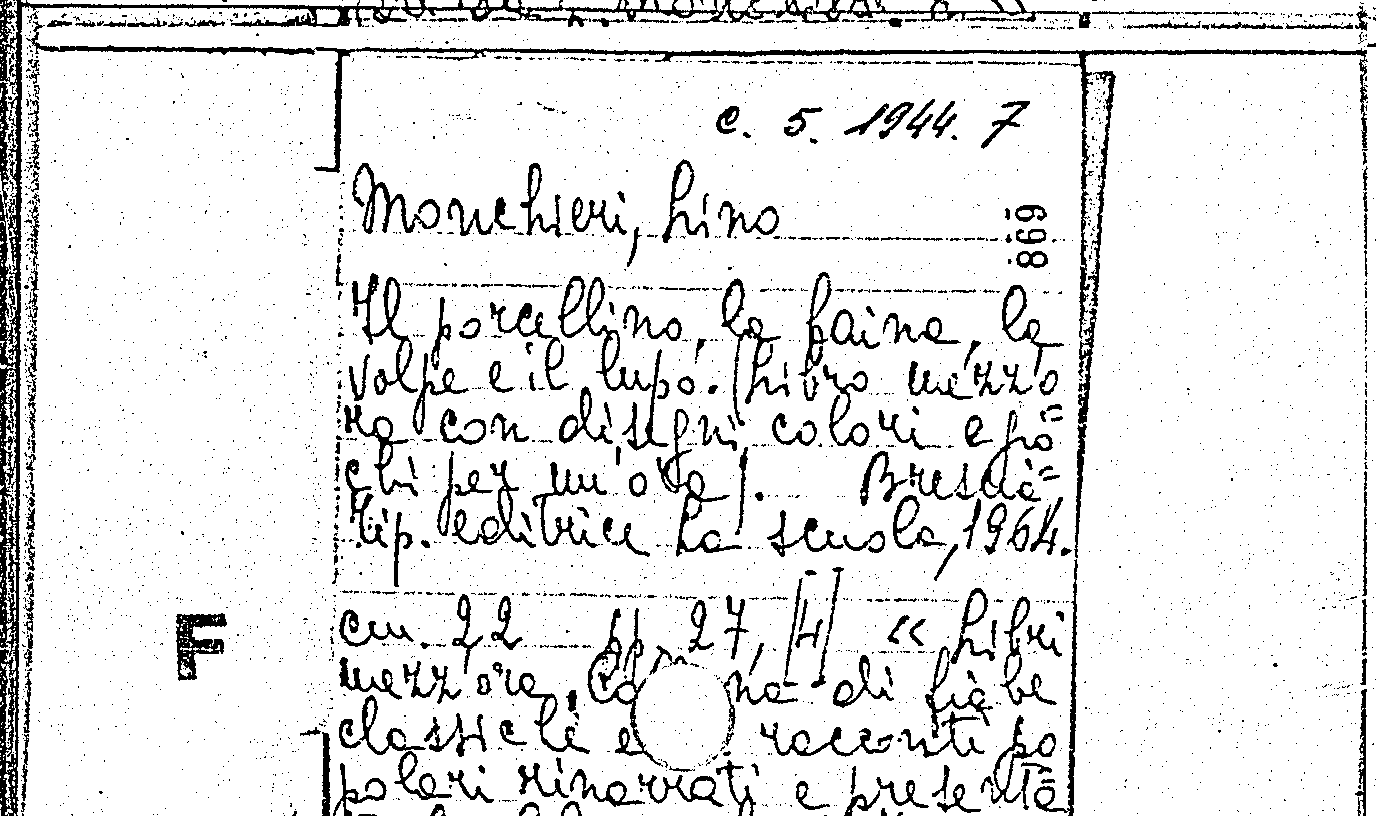 c. 5. 1944. 7
Monchieri, Lino
869
Il porcellino, la faina, la
volpe e il lupo. (Libro mezz'o
ra con disegni, colori e po=
chi per un'ora). Brescia
Tip. editrice La scuola, 1964.
cm. 22 pp. 27, [4] « Libri
F
mezz'ora, Co na di fiabe
classiche e racconti po
polari rinarrati e presenta=